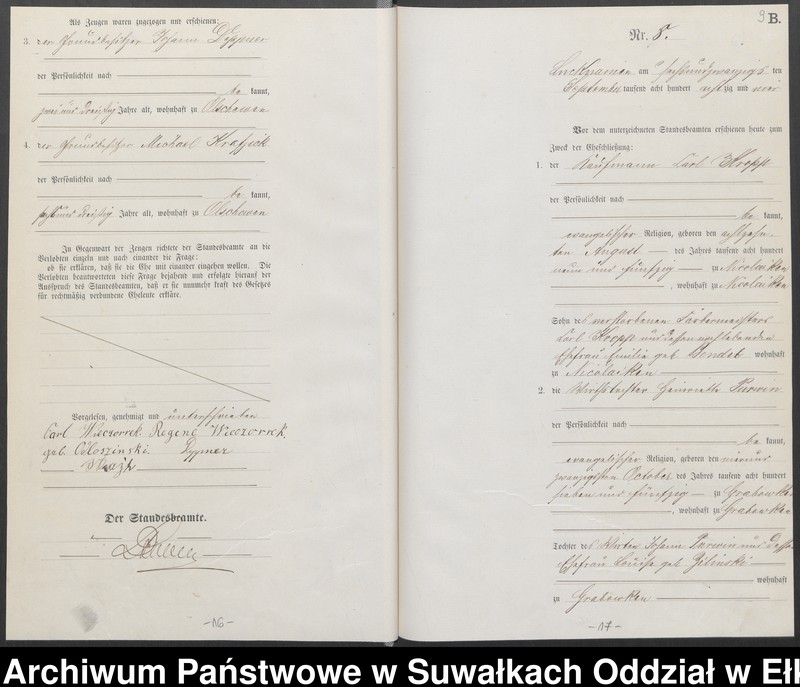 Als Zeugen waren zugezogen und erschienen:
3. der Grundbesitzer Johann Dyppner
der Persönlichkeit nach
be kannt,
zwei und dreißig Jahre alt, wohnhaft zu Olschewen
4. der Grundbesitzer Michael
der Persönlichkeit nach
be kannt,
sechs und dreißig Jahre alt, wohnhaft zu Olschewen
In Gegenwart der Zeugen richtete der Standesbeamte an die
Verlobten einzeln und nach einander die Frage:
ob sie erklären, daß sie die Ehe mit einander eingehen wollen. Die
Verlobten beantworteten diese Frage bejahend und erfolgte hierauf der
Ausspruch des Standesbeamten, daß er sie nunmehr kraft des Gesetzes
für rechtmäßig verbundene Eheleute erkläre.
Vorgelesen, genehmigt und unterschrieben
Carl Wieczorrek. Regine Wieczorrek,
geb.
Der Standesbeamte.
-16-
9 B.
Nr. 8.
am sechsundzwanzigs ten
September tausend acht hundert achtzig und vier
Vor dem unterzeichneten Standesbeamten erschienen heute zum
Zweck der Eheschließung:
1. der Kaufmann Carl Kropp
der Persönlichkeit nach
be kannt,
evangelischer Religion, geboren den achtzehn-
ten August des Jahres tausend acht hundert
neun und fünfzig zu Nicolaiken
, wohnhaft zu Nicolaiken
Sohn des verstorbenen Färbermeisters
Carl Kropp und dessen nachlebenden
Ehefrau Emilie geb. Bendel wohnhaft
zu Nicolaiken
2. die Wirthstochter Henriette Parwin
der Persönlichkeit nach
be kannt,
evangelischer Religion, geboren den vierund
zwanzigsten October des Jahres tausend acht hundert
sieben und fünfzig zu Grabowken
, wohnhaft zu Grabowken
Tochter des Wirten Johann Parwin und dessen
Ehefrau Louise geb. Zilinski
wohnhaft
zu Grabowken
-17-
Archiwum Państwowe w Suwałkach Oddział w Eł